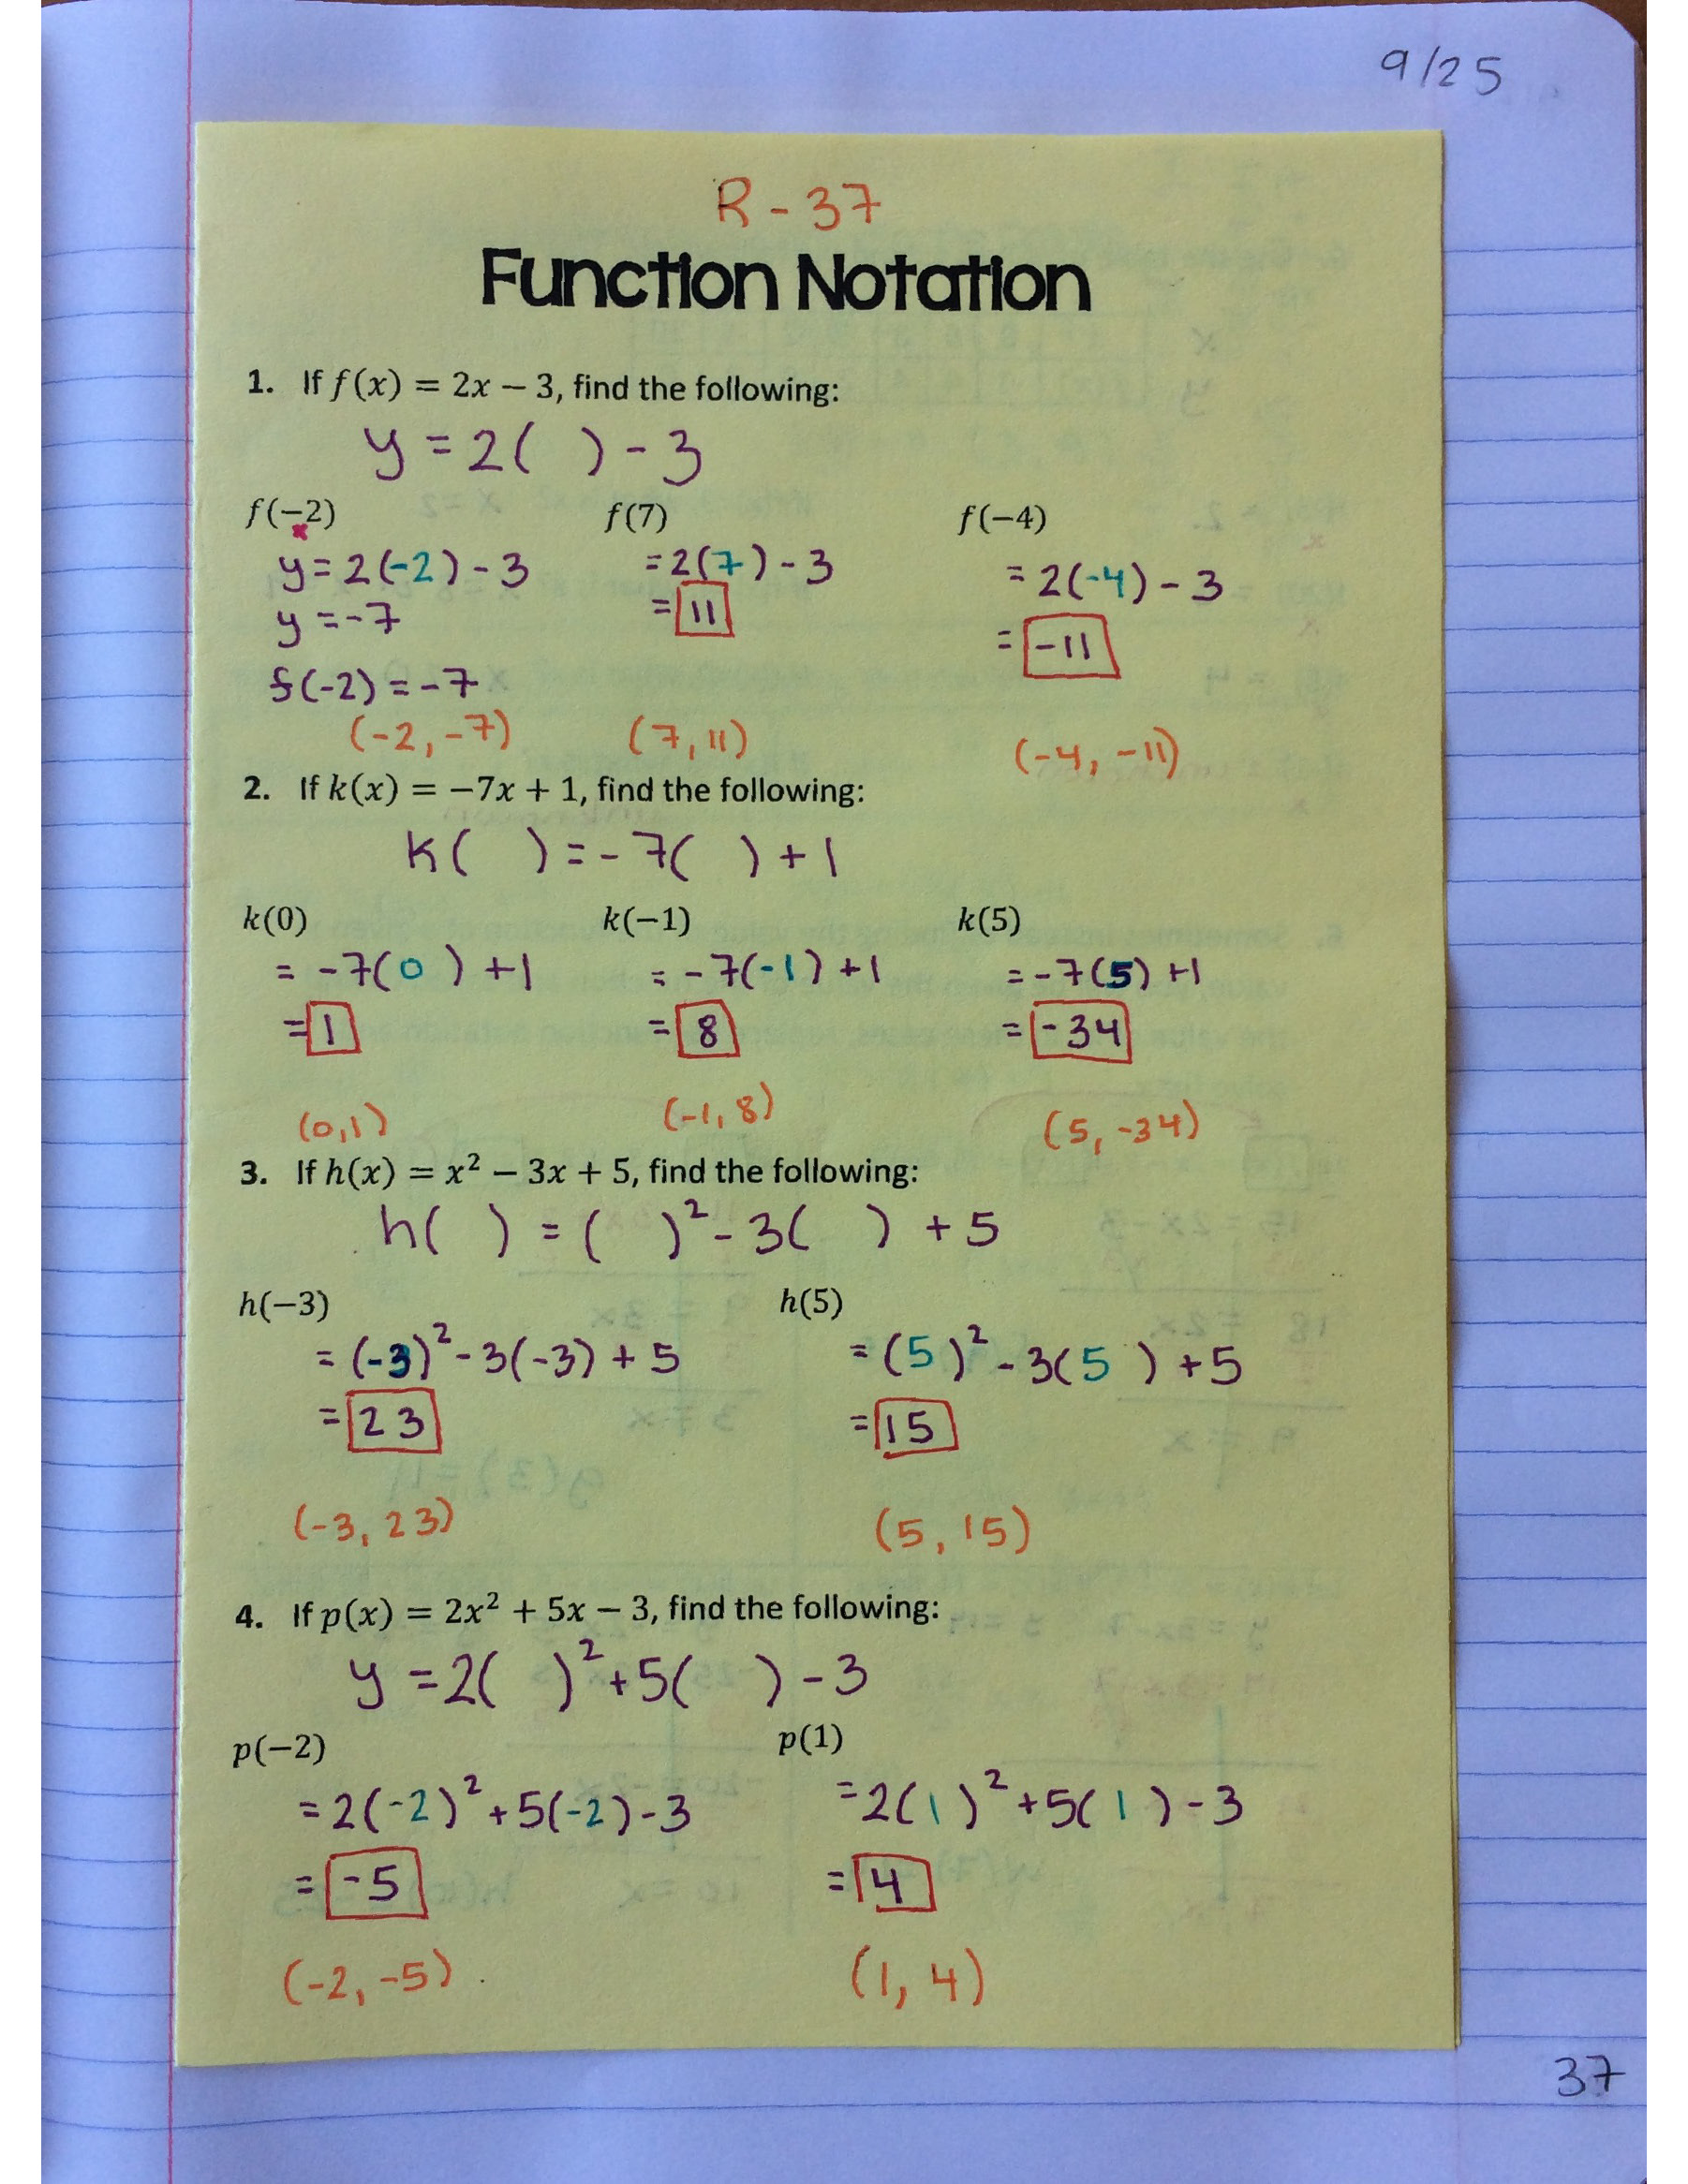 9/25
R-37
Function Notation
1. If f(x) = 2x − 3, find the following:
y = 2( ) - 3
f(−2) f(7) f(−4)
x
y = 2(-2) - 3 = 2(7) - 3 = 2(-4) - 3
y = -7 = 11 = -11
f(-2) = -7
(-2, -7) (7, 11) (-4, -11)
2. If k(x) = −7x + 1, find the following:
k( ) = -7( ) + 1
k(0) k(−1) k(5)
= -7(0) + 1 = -7(-1) + 1 = -7(5) + 1
= 1 = 8 = -34
(0, 1) (-1, 8) (5, -34)
3. If h(x) = x² − 3x + 5, find the following:
h( ) = ( )² - 3( ) + 5
h(−3) h(5)
= (-3)² - 3(-3) + 5 = (5)² - 3(5) + 5
= 23 = 15
(-3, 23) (5, 15)
4. If p(x) = 2x² + 5x − 3, find the following:
y = 2( )² + 5( ) - 3
p(−2) p(1)
= 2(-2)² + 5(-2) - 3 = 2(1)² + 5(1) - 3
= -5 = 4
(-2, -5) (1, 4)
37